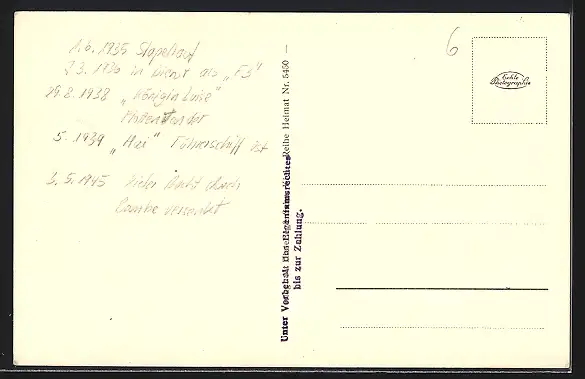 1.6.1935 Stapellauf
7.3.1936 in Dienst als „F3"
29.8.1938 „Königin Luise"
5.1939 „Hai" Führerschiff
3.5.1945 Kieler Bucht durch
Bombe versenkt
6
Echte
Photographie
Reihe Heimat Nr. 5450 —
Unter Vorbehalt des Eigentumsrechtes
bis zur Zahlung.